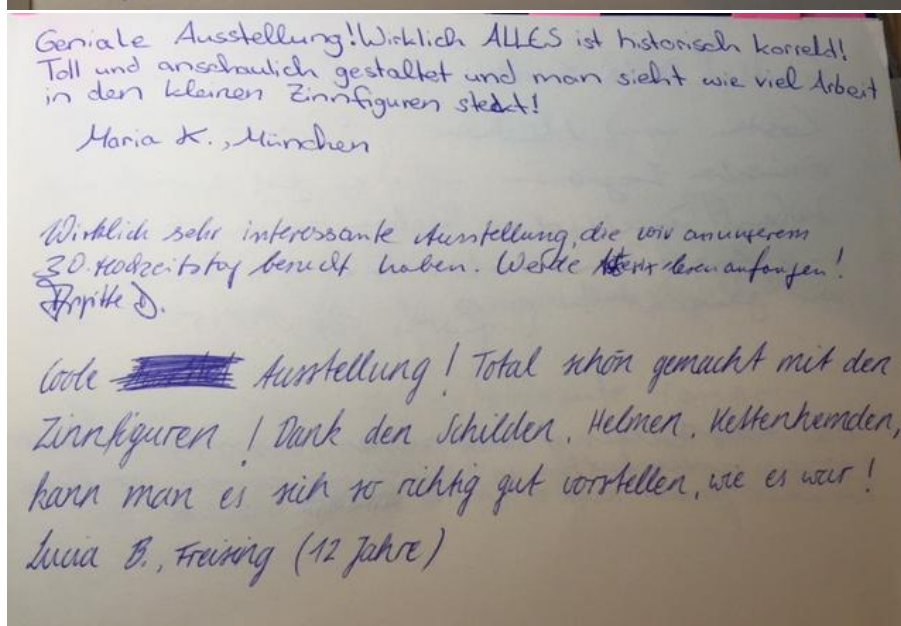 Geniale Ausstellung! Wirklich ALLES ist historisch korrekt!
Toll und anschaulich gestaltet und man sieht wie viel Arbeit
in den kleinen Zinnfiguren steckt!
Maria K., München
Wirklich sehr interessante Ausstellung, die wir an unserem
30. Hochzeitstag besucht haben. Werde Asterix lesen anfangen!
Brigitte D.
Coole Ausstellung! Total schön gemacht mit den
Zinnfiguren! Dank den Schilden, Helmen, Kettenhemden,
kann man es sich so richtig gut vorstellen, wie es war!
Lucia B., Freising (12 Jahre)